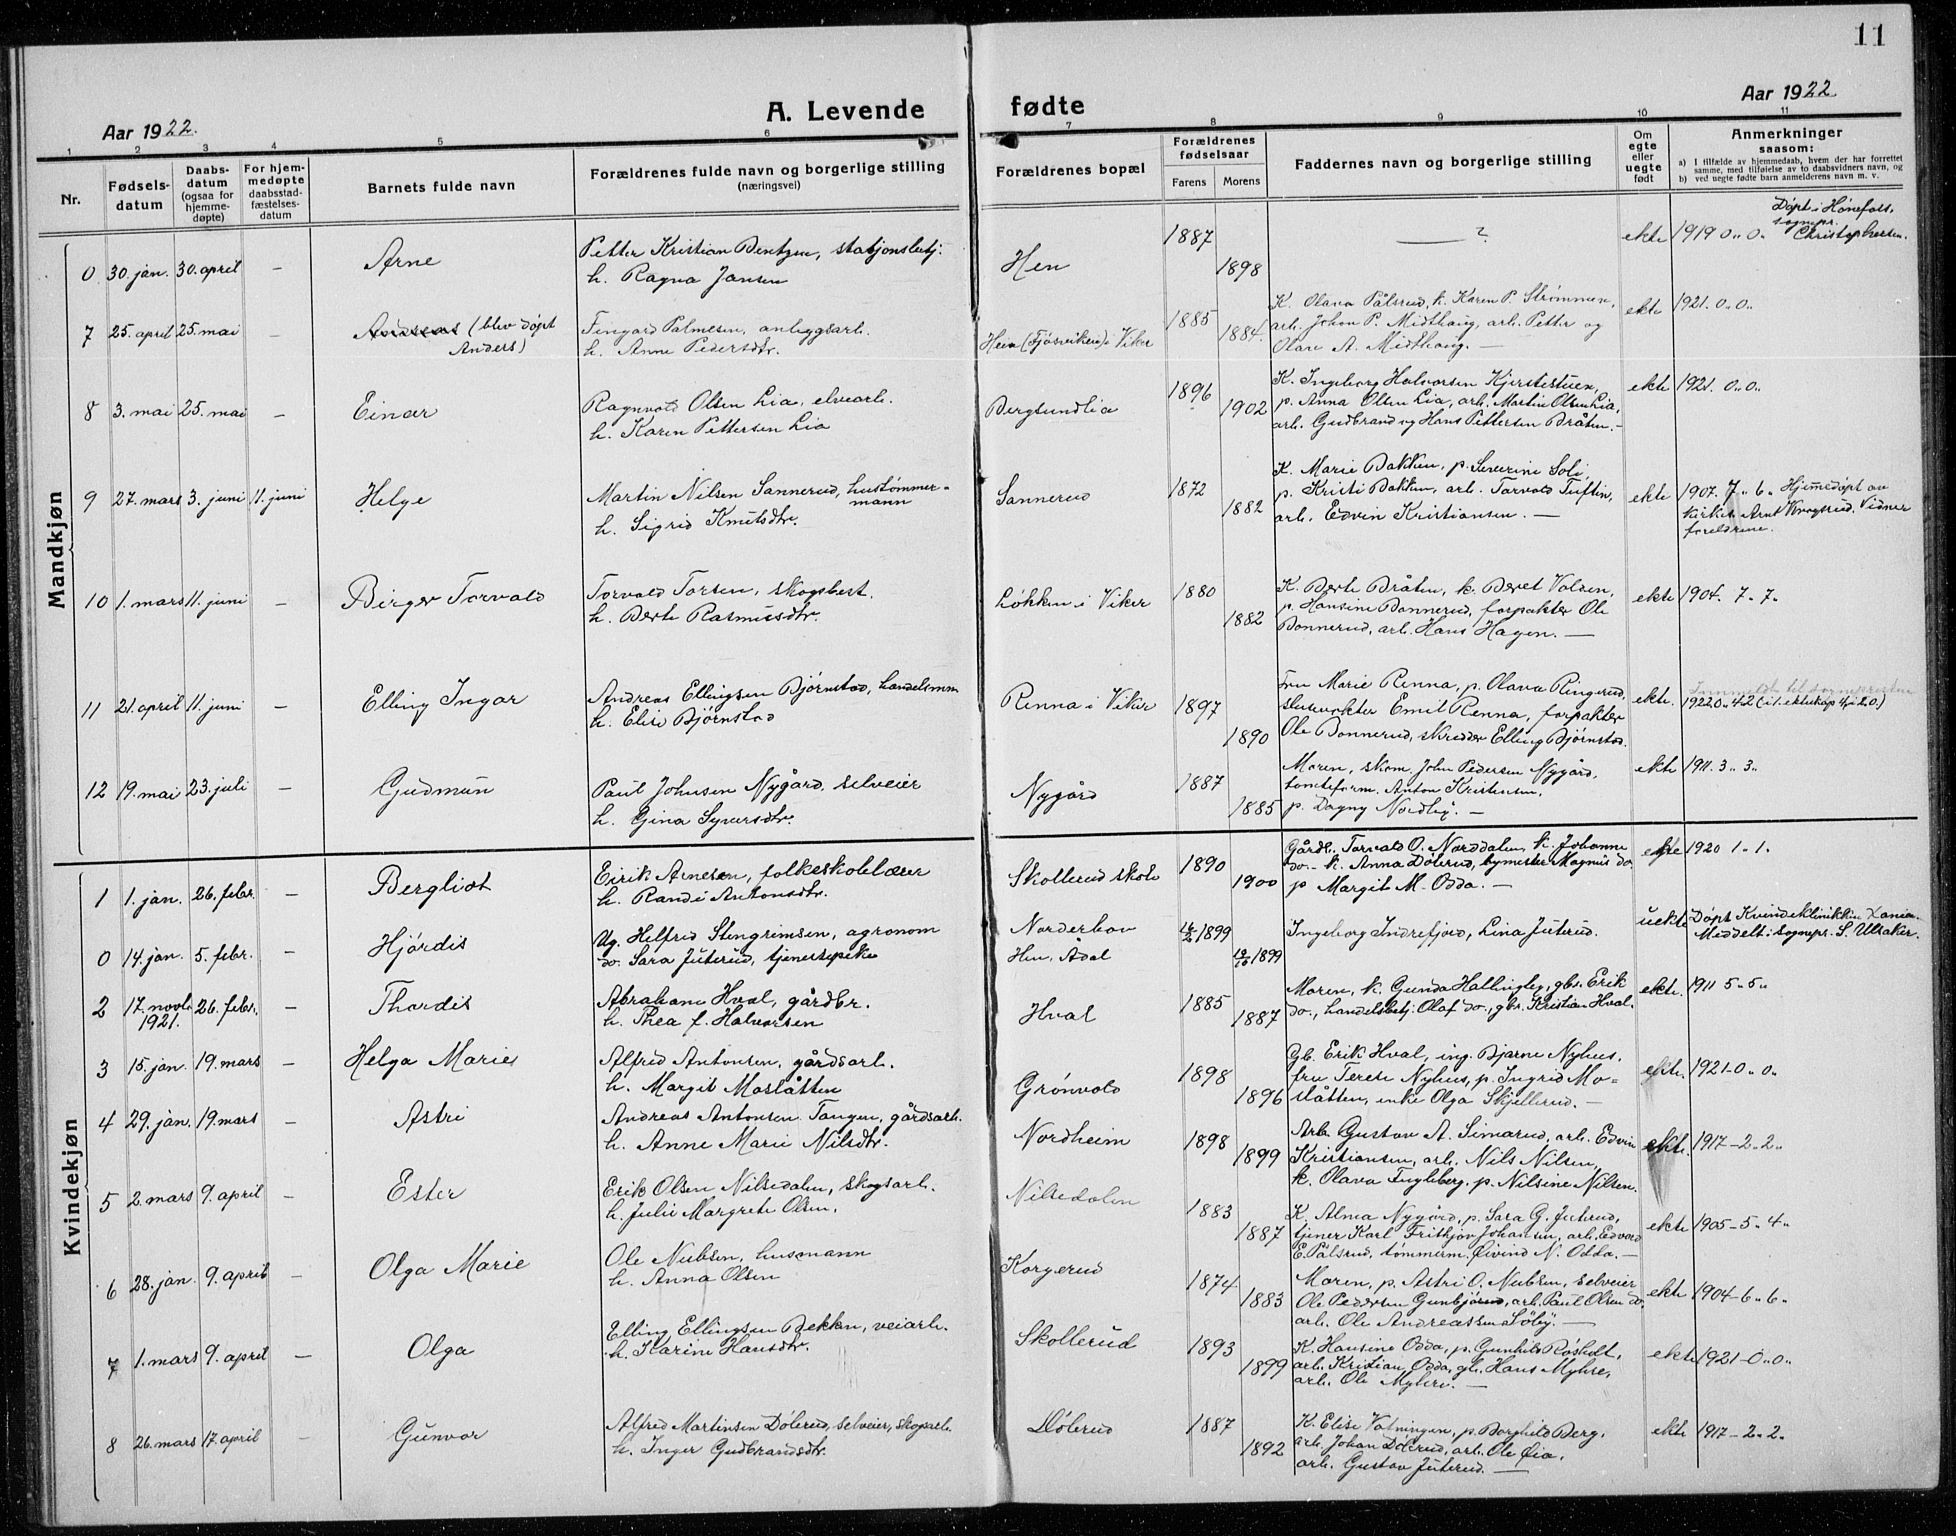 11
Aar 1922.
A. Levende fødte
Aar 1922.
1 2 3 4 5 6 7 8 9 10 11
Nr.
Fødsels-
datum
Daabs-
datum
(ogsaa for
hjemme-
døpte)
For hjem-
medøpte
daabsstad-
fæstelses-
datum
Barnets fulde navn
Forældrenes fulde navn og borgerlige stilling
(næringsvei)
Forældrenes bopæl
Forældrenes
fødselsaar
Farens Morens
Faddernes navn og borgerlige stilling
Om
egte
eller
uegte
født
Anmerkninger
saasom:
a) I tilfælde av hjemmedaab, hvem der har forrettet
samme, med tilføielse av to daabsvidners navn, og
b) ved uegte fødte barn anmelderens navn m. v.
Mandkjøn
0 30. jan. 30. april – Arne
Petter Kristian Bentzen, stasjonsbetj.
h. Ragna Jansen
Hen 1887 1898
— ? ekte 1919 0 „ 0 „
Døpt i Hønefoss,
sognepr.
Christophersen.
7 25. april 25. mai – (blev døpt
Anders)
Fingard Palmesen, anleggsarb.
h. Anne Pedersdtr.
Hen (Fjøsviken) i Viker 1885 1884.
K. Olava Pålsrud, k. Karen P. Strømmen,
arb. Johan P. Midthaug, arb. Petter og
Olav A. Midthaug. —
ekte 1921. 0 „ 0 „
8 3. mai 25. mai – Einar
Ragnvald Olsen Lia, elvearb.
h. Karen Pettersen Lia
Bergsundlia 1896 1902
K. Ingeborg Halvorsen Kjerstestuen,
p. Anna Olsen Lia, arb. Martin Olsen Lia,
arb. Gudbrand og Hans Pettersen Bråten. –
ekte 1921. 0 „ 0 „
9 27. mars 3. juni 11. juni Helge
Martin Nilsen Sannerud, hustømmer-
mann
h. Sigrid Knutsdtr.
Sannerud 1872 1882
K. Marie Bakken, p. Severine Soli
p. Kristi Bakken, arb. Torvald Tuftin,
arb. Edvin Kristiansen. —
ekte 1907. 7 „ 6 „ Hjemedøpt av
kirket. Arnt Krogsrud. Vidner
foreldrene.
10 1. mars 11. juni – Birger Torvald
Torvald Torsen, skogsbest.
h. Berte Rasmusdtr.
Løkken i Viker 1880 1882
K. Berte Bråten, k. Beret Volden,
p. Hansine Bonnerud, forpakter Ole
Bonnerud, arb. Hans Hagen. —
ekte 1904. 7 „ 7 „
11 21. april 11. juni – Elling Ingar
Andreas Ellingsen Bjørnstad, handelsmn
h. Elise Bjørnstad
Renna i Viker 1897 1890
Fru Marie Renna, p. Olava Ringerud,
slusevokter Emil Renna, forpakter
Ole Bonnerud, skredder Elling Bjørnstad.
ekte. 1922 0 „ 4 2 (i 1. ekteskap 4, i 2. 0.)
12 19. mai 23. juli – Gudmun
Paul Johnsen Nygård, selveier
h. Gina Syversdtr.
Nygård 1887 1885
Moren, skom. John Pedersen Nygård,
tomteform. Anton Kristensen,
p. Dagny Nordby. —
ekte 1911. 3 „ 3 „
Kvindekjøn
1 1. jan. 26. febr. – Bergliot
Eirik Arnesen, folkeskolelærer
h. Randi Antonsdtr.
Skollerud skole 1890 1900
Gårdb. Torvald O. Norddalen, k. Johanne
do. – k. Anna Dølerud, bymester Magnus do
p Margit M. Odda. —
ekte 1920 1 „ 1 „
0 14. jan. 5. febr. – Hjørdis
Ug. Helfrid Stengrimsen, agronom
do. Sara Juterud, tjenestepike
Norderhov
Hen, Ådal
1899 1899
Ingeborg Indrefjord, Lina Juterud.
uekte Døpt Kvindeklinikken
Meddelt: sognepr. S. Ulsaker.
2 17. novbr.
1921. 26. febr. – Thordis
Abraham Hval, gårdbr.
h. Thea f. Halvorsen
Hval 1885 1887
Moren, k. Gunda Hallingby, gbr. Erik
do., handelsbetj. Olaf do., gbr. Kristian Hval.
ekte. 1911 5 „ 5 „
3 15. jan. 19. mars – Helga Marie
Alfred Antonsen, gårdsarb.
h. Margit Moslåtten
Grønvold 1898 1896
Gb. Erik Hval, ing. Bjarne Nyhus,
fru Terese Nyhus, p. Ingrid Mo-
slåtten, enke Olga Skjellerud. —
ekte. 1921 0 „ 0 „
4 29. jan. 19. mars – Astri
Andreas Antonsen Tangen, gårdsarb.
h. Anne Marie Nilsdtr.
Nordheim 1898 1899
Arb. Gustav A. Simarud, arb. Edvin
Kristiansen, arb. Nils Nilsen,
k. Olava Fugleberg, p. Nilsine Nilsen.
ekte. 1917 – 2 „ 2 „
5 2. mars 9. april – Ester
Erik Olsen Nilsedalen, skogsarb.
h. Julie Margrete Olsen.
Nilsedalen 1883 1887
K. Alma Nygård, p. Sara G. Juterud,
tjener Karl Fritjov Johansen, arb. Edvard
E. Pålsrud, tømmerm. Øivind N. Odda. —
ekte 1905 – 5 „ 4 „
6 28. jan. 9. april – Olga Marie
Ole Nubsen, husmann
h. Anna Olsen
Korgerud 1874 1883
Moren, p. Astri O. Nubsen, selveier
Ole Pedersen Gunbjørud, arb. Paul Olsen do,
arb. Ole Andreassen Søby. —
ekte 1904 – 6 „ 6 „
7 1. mars 9. april – Olga
Elling Ellingsen Bekken, veiarb.
h. Karine Hansdtr.
Skollerud 1893 1899
K. Hansine Odda, p. Gunhild Røsholt,
arb. Kristian Odda, gb. Hans Myhre,
arb. Ole Myhre. —
ekte 1921 – 0 „ 0 „
8 26. mars 17. april – Gunvor
Alfred Martinsen Dølerud, selveier, skogsarb.
h. Inger Gudbrandsdtr.
Dølerud 1887 1892
K. Elise Vatningen, p. Borghild Berg,
arb. Johan Dølerud, arb. Ole Øia,
arb. Gustav Juterud. —
ekte 1917 – 2 „ 2 „